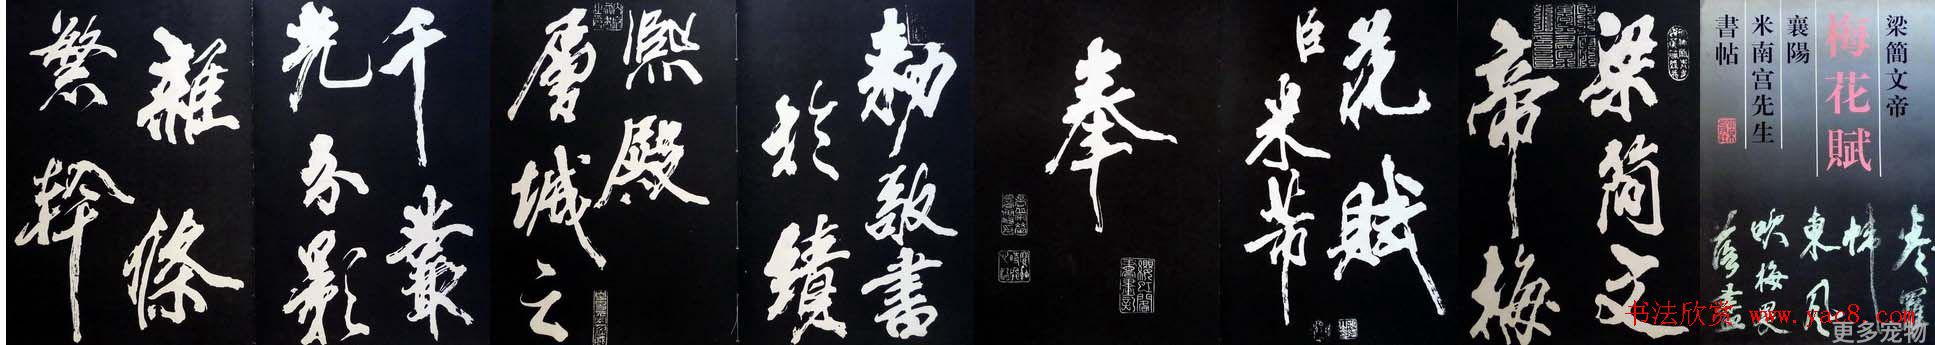 梁簡文帝
梅花賦
襄陽
米南宫先生
書帖
東風
吹梅畏
落盡
梁簡文
帝梅
花賦
臣米芾
奉
勅敬書
於績
熙殿
層城之
千叢
光分影
雜條
繁幹
书法欣赏 www.yac8.com
更多宠物